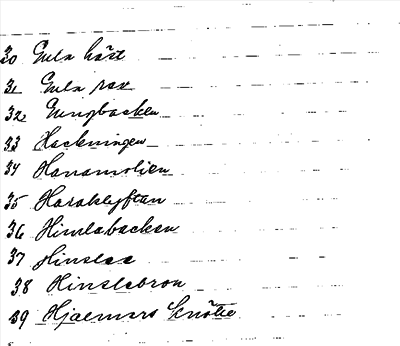 30 Gula häst
31 Gula rar
32 Gungbacken
33 Hackningen
34 Hanamolien
35 Haraklyftan
36 Himlabacken
37 Hinslea
38 Hinslebron
39 Hjalmars